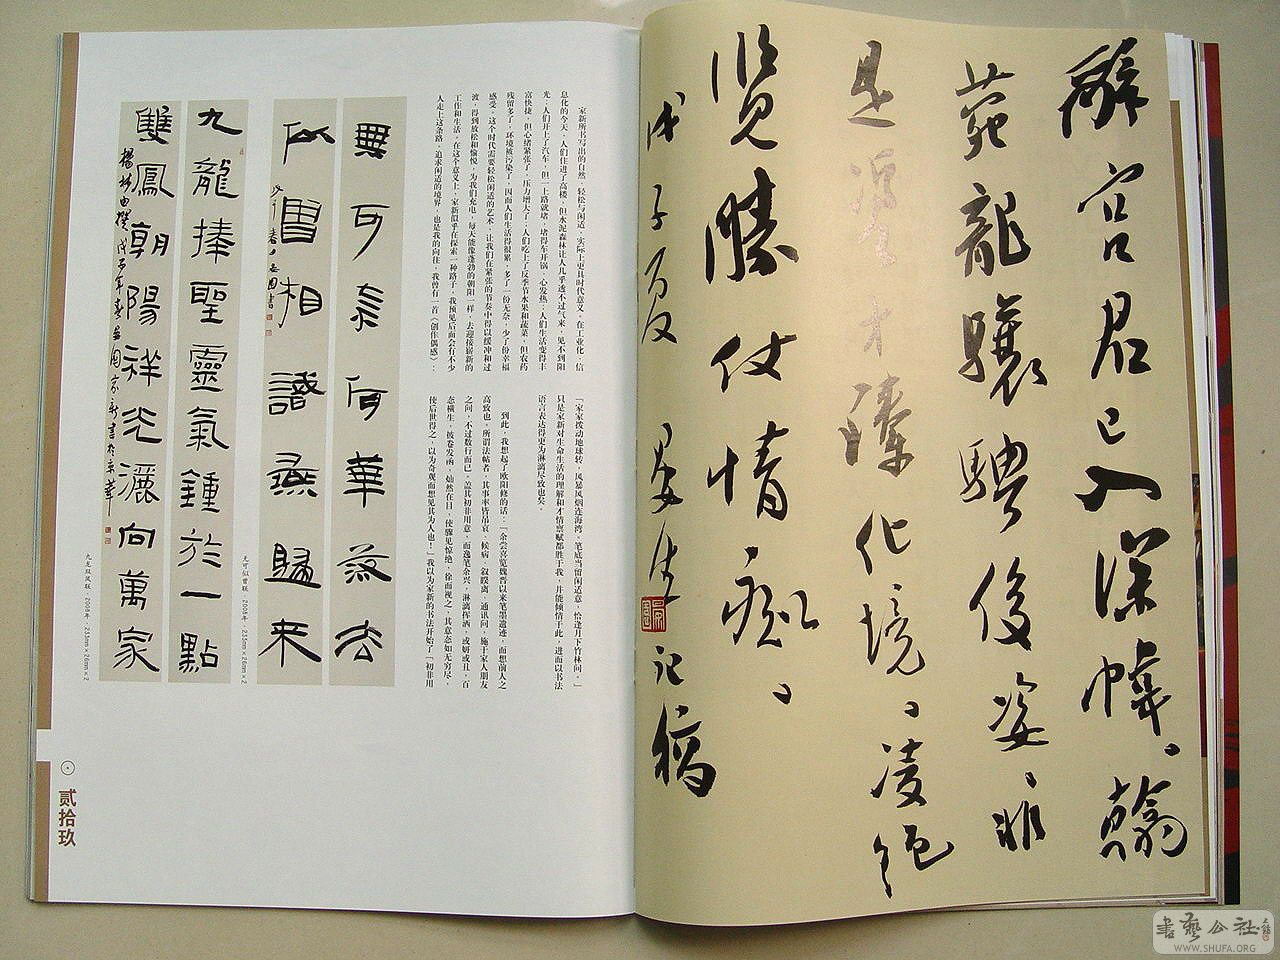 辭官君已入深幃。翰
苑龍驤騁俊姿、非
是 才臻化境、凌絕
览勝仗情痴、
戊子夏 记稿
家新所书写出的自然、轻松与闲适，实际上更具时代意义。在工业化、信
息化的今天，人们住进了高楼，但水泥森林让人几乎透不过气来，见不到阳
光；人们开上了汽车，但一上路就堵，堵得车开锅，心发热；人们生活变得丰
富快捷，但心绪紧张了，压力增大了；人们吃上了反季节水果和蔬菜，但农药
残留多了，环境被污染了，因而人们生活得很累，多了一份无奈，少了份幸福
感受。这个时代需要轻松闲适的艺术，让我们在紧张的节奏中得以缓冲和过
渡，得到放松和愉悦，为我们充电，每天能像蓬勃的朝阳一样，去迎接崭新的
工作和生活。在这个意义上，家新似乎在探索一种路子，我预见后面会有不少
人走上这条路，追求闲适的境界，也是我的向往。我曾有一首《创作偶感》：
「家家拨动地球转，风暴风烟连海湾。笔底当留闲适意，恰逢月下竹林问。」
只是家新对生命生活的理解和才情禀赋都胜于我，并能倾情于此，进而以书法
语言表达得更为淋漓尽致也矣。
到此，我想起了欧阳修的话：「余尝喜览魏晋以来笔墨遗迹，而想前人之
高致也。所谓法帖者，其事率皆吊哀、候病、叙睽离、通讯问，施于家人朋友
之间，不过数行而已。盖其初非用意，而逸笔余兴，淋漓挥洒，或妍或丑，百
态横生，披卷发函，灿然在目，使骤见惊绝，徐而视之，其意态如无穷尽，
使后世得之，以为奇观而想见其为人也！」我以为家新的书法开始了「初非用
無可奈何華落去
似曾相識燕歸来
无可似曾联·2008年·235cm×26cm×2
九龍捧聖靈氣鍾於一點
雙鳳朝陽祥光灑向萬家
九龙双凤联·2008年·235cm×26cm×2
贰拾玖
書藝公社
WWW.SHUFA.ORG